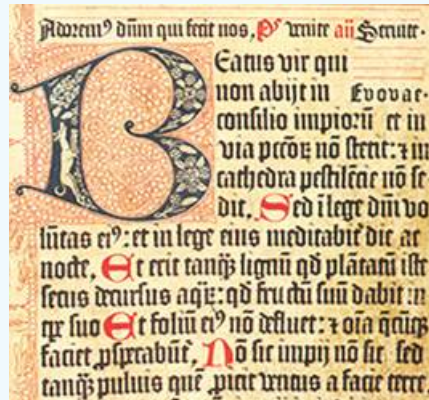 Adorem⁹ dñm qui fecit nos, Ps̄ venite añ Servite.
Beatus vir qui
non abijt in Evovae.
consilio impiorū et in
via pccōꝝ nō stetit: ⁊ in
cathedra pestilēcie nō se
dit, Sed ī lege dñi vo
lūtas ei⁹: et in lege eius meditabit̄ die ac
nocte, Et erit tanqꝫ lignū qd̄ plātatū est
secus decursus aqꝝ: qd̄ fructū suū dabit in
tꝑe suo Et foliū ei⁹ nō defluet: ⁊ oīa q̄cūqꝫ
faciet ꝓsperabūt̄, Nō sic impij nō sic sed
tanqꝫ pulvis quē ꝓicit ventus a facie terre,